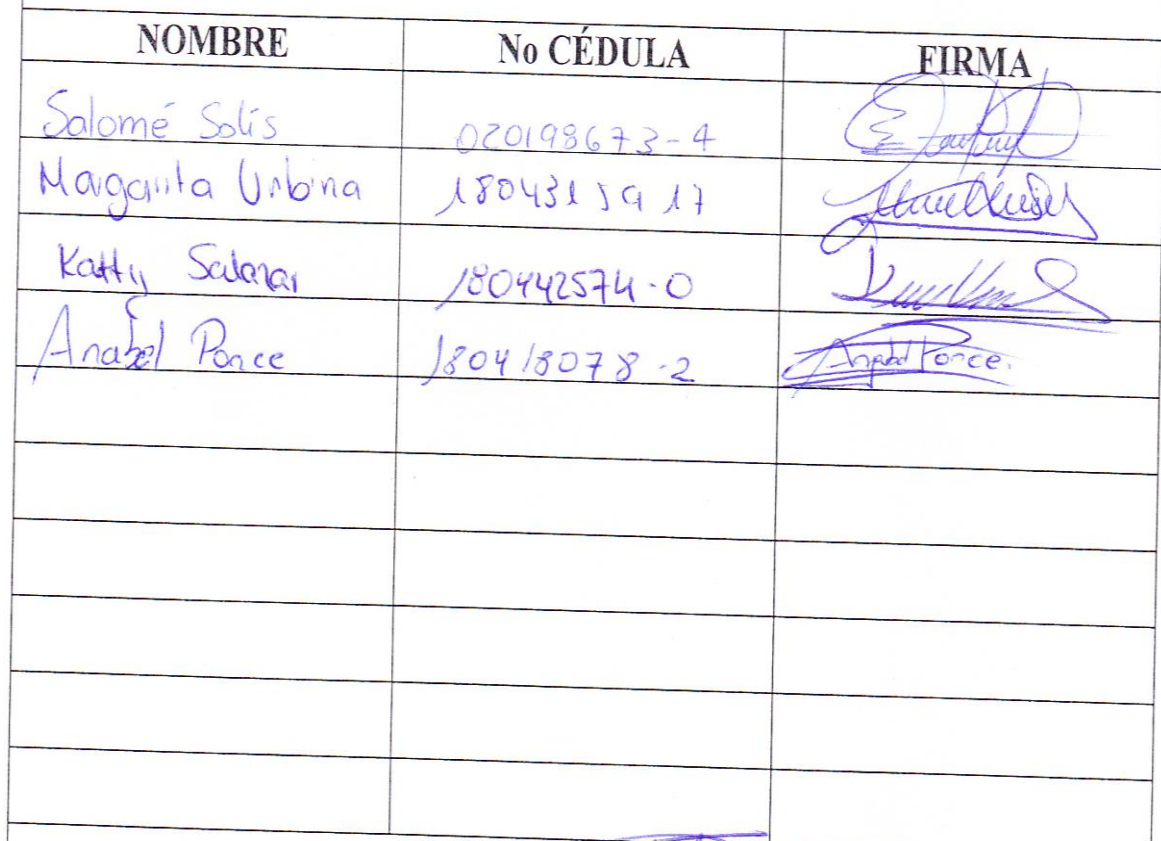 NOMBRE No CÉDULA FIRMA
Salomé Solís 020198673-4
Margarita Urbina
Katty Salazar 180442574-0
Anabel Ponce 180418078-2 Anabel Ponce.